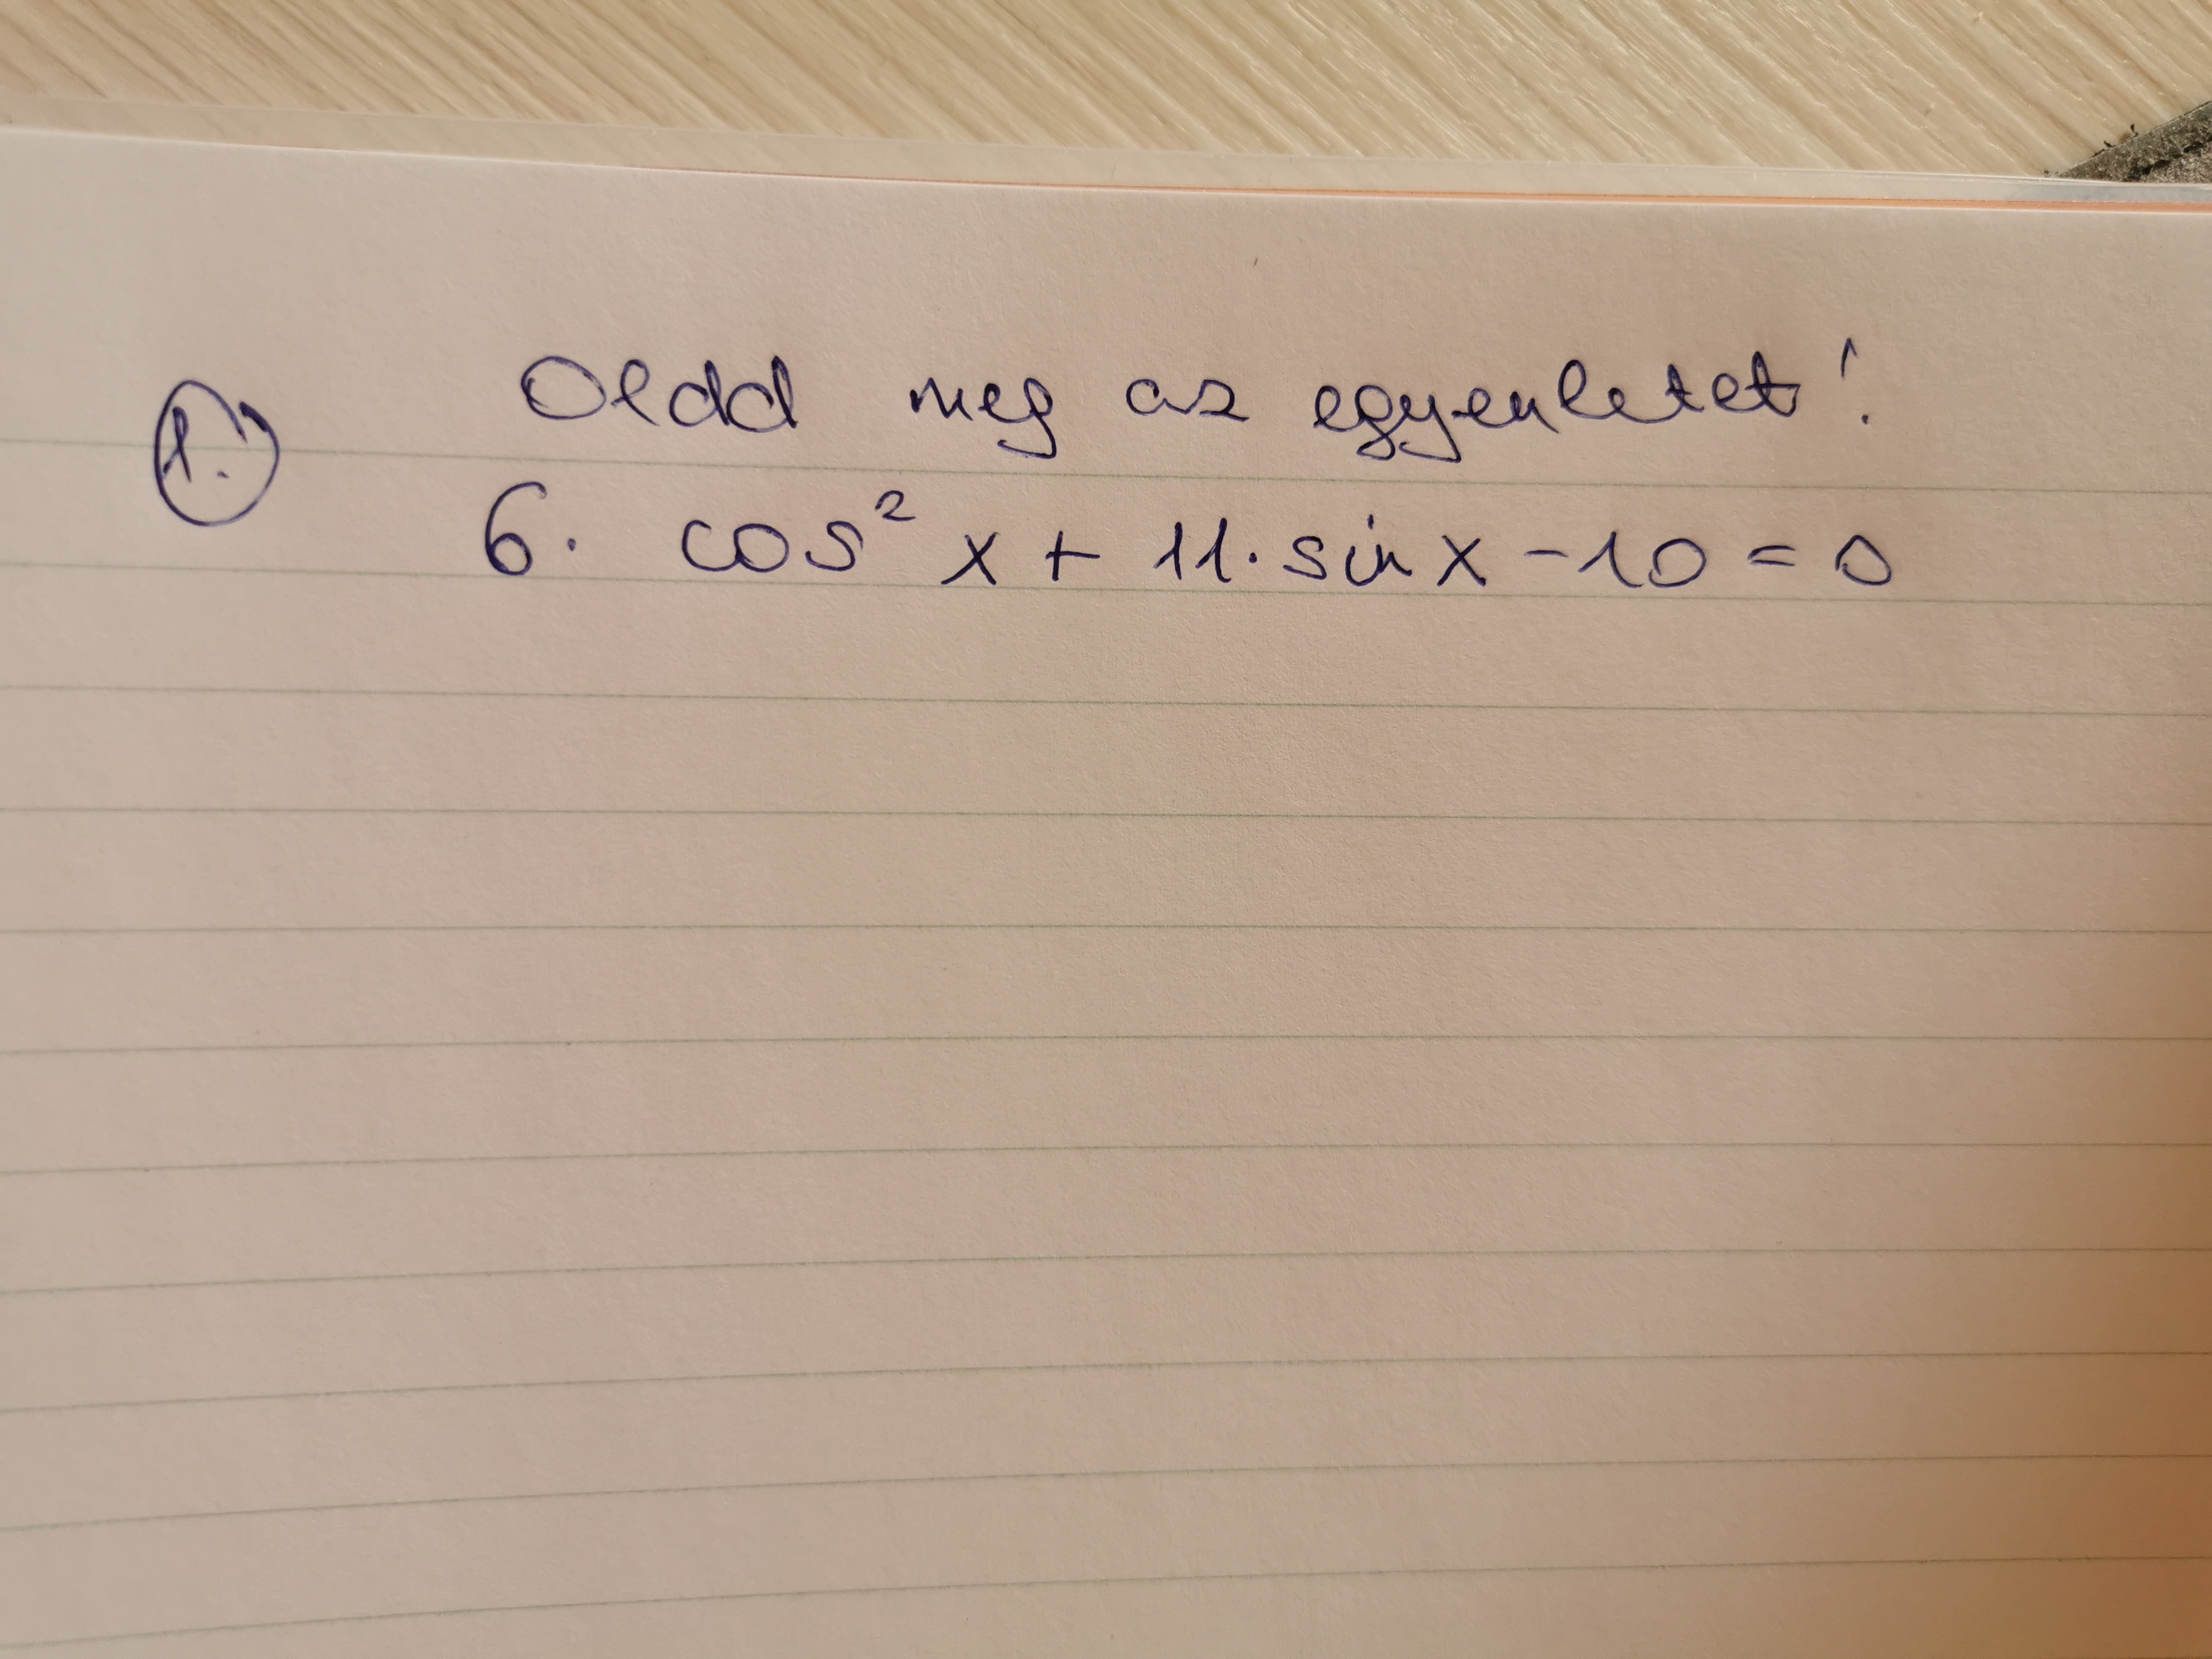 1.) Oldd meg az egyenletet!
6. cos² x + 11. sin x - 10 = 0